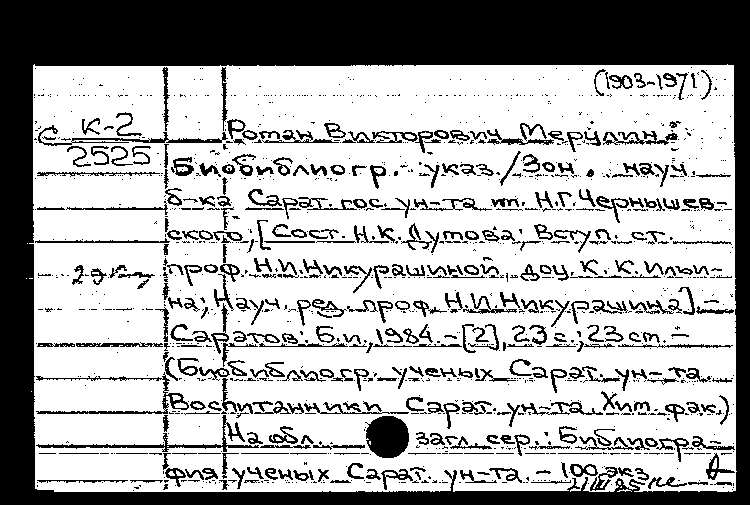 (1903-1971).
С К-2
2525
Роман Викторович Мерцлин:
Биобиблиогр. указ./Зон. науч.
б-ка Сарат. гос. ун-та им. Н.Г.Чернышев-
ского; [Сост. Н.К.Дутова; Вступ. ст.
2 экз
проф. Н.И.Никурашиной, доц. К.К.Ильи-
на; Науч. ред. проф. Н.И.Никурашина]. –
Саратов: Б.и., 1984. – [2], 23 с.; 23 см. –
(Биобиблиогр. ученых Сарат. ун-та.
Воспитанники Сарат. ун-та. Хим. фак.)
На обл. загл. сер.: Библиогра-
фия ученых Сарат. ун-та. – 100 экз